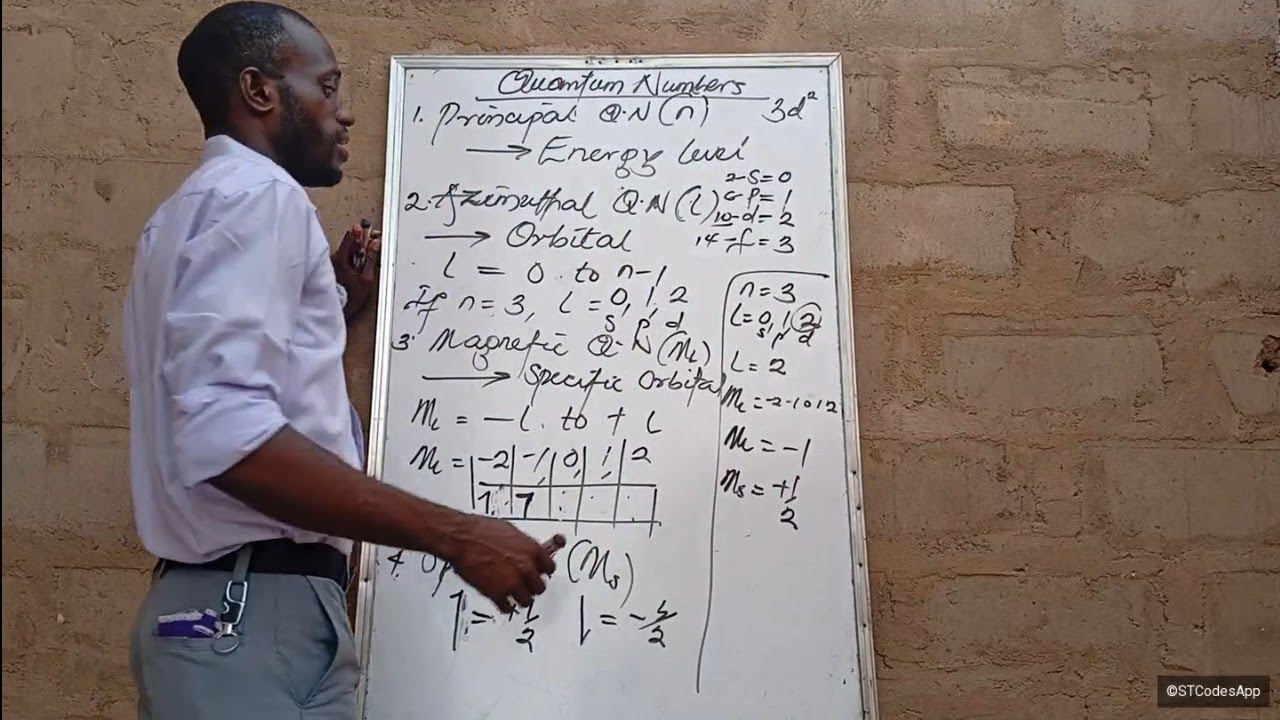 Quantum Numbers
1. Principal Q.N (n)
3d²
→ Energy level
2. Azimuthal Q.N (l)
2-s=0
6-p=1
10-d=2
14-f=3
→ Orbital
l = 0 to n-1
If n=3, l=0, 1, 2
s, p, d
3. Magnetic Q.N (Ml)
→ Specific Orbital
Ml = -l to + l
Ml = -2 -1, 0, 1, 2
1 1
4. (Ms)
↿ = +1/2 ⇂ = -1/2
n=3
l=0, 1, 2
s, p, d
l = 2
Ml = -2 -1 0 1 2
Ml = -1
Ms = +1/2
©STCodesApp